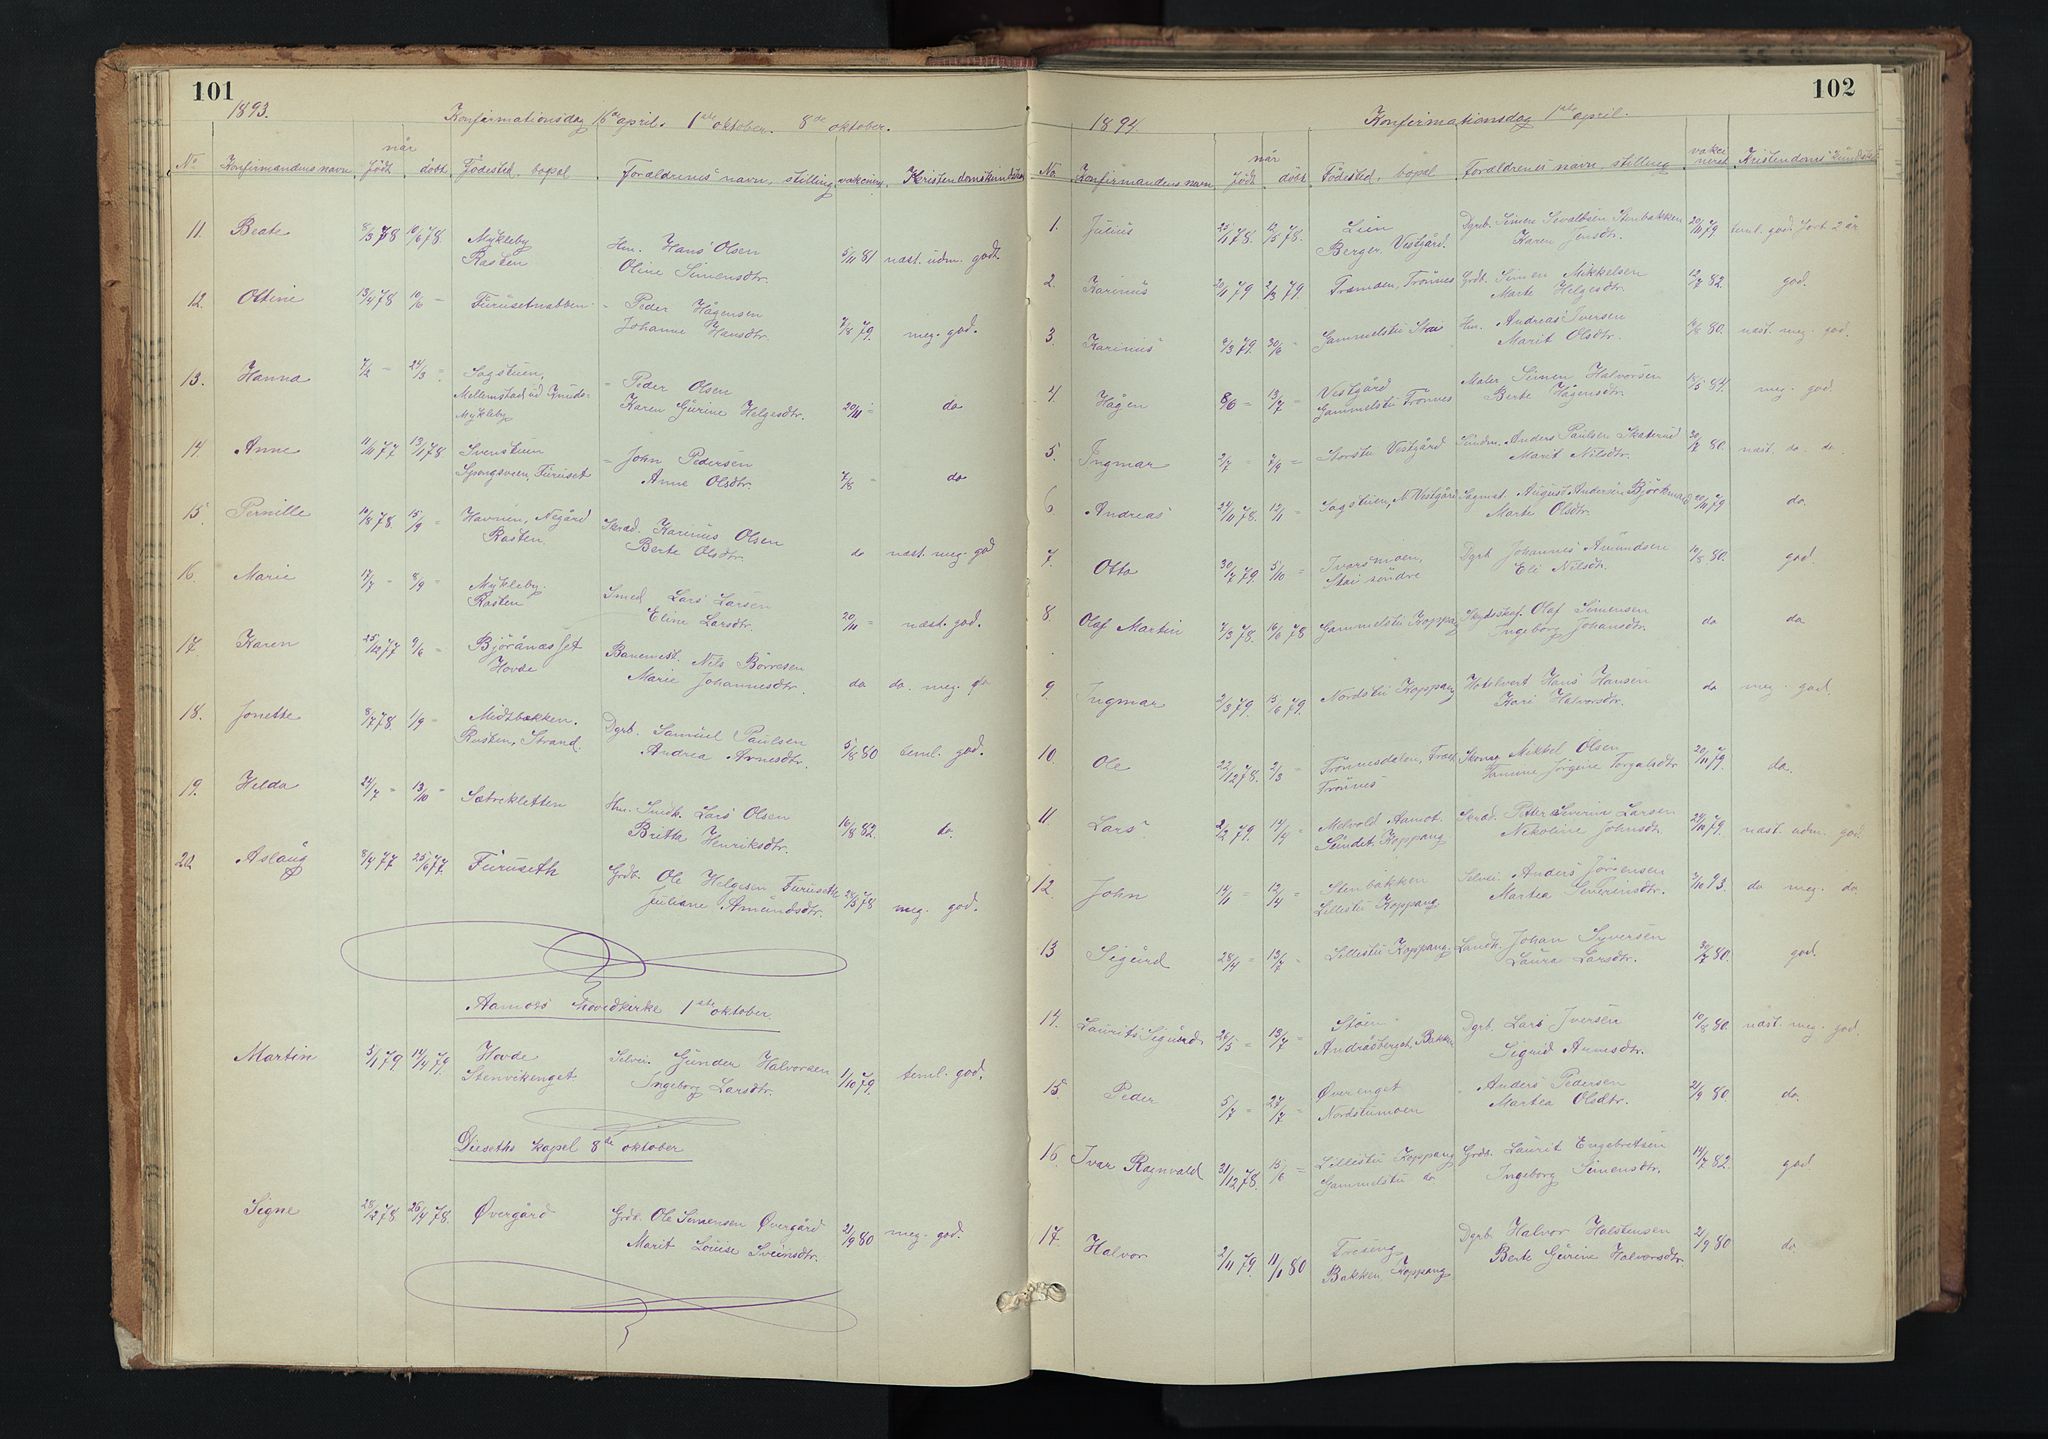 101
1893. Konfirmationsdag 16de april. 1ste oktober. 8de oktober.
når
No Konfirmandens navn født døbt Fødested, bopel Forældrenes navn, stilling vakcin. Kristendomskundskab
11. Beate 8/3 78 10/6 78 Mykleby Hm. Hans Olsen
Rasten Oline Simensdtr. 5/11 81 næst. udm. godt.
12. Oltine 13/4 78 10/6 – Furusetnabben – Peder Hågensen
Johanne Hansdtr. 7/8 79. meg. god.
13. Hanna 7/2 – 24/3 – Sagstuen, – Peder Olsen
Mellemstad ud Knuds- Karen Gurine Helgesdtr. 20/11 – do
Mykleby
14. Anne 11/11 77 13/1 78 Svenstuen – John Pedersen
Spengsveen, Furuset Anne Olsdtr. 7/8 – do
15. Pernille 10/8 78 15/9 – Havnen, Negård Skræd. Karinus Olsen
Rasten. Berte Olsdtr. do næst. meg. god
16. Marie 17/7 – 8/9 – Mykleby. Smed Lars Larsen
Rasten Eline Larsdtr. 20/11 – næst. god.
17. Karen 25/12 77 9/6 – Bjøråneset Banemest. Nils Børresen
Hovde Marie Johannesdtr. do do. meg. do
18. Jonette 8/7 78. 1/9 – Midtbakken. Dgrb. Samuel Paulsen
Rusten, Strand. Andrea Arnesdtr. 5/8 80 teml. god.
19. Helda 24/7 – 13/10 – Sætrekletten Hm. Smdk. Lars Olsen
Brith Henriksdtr. 16/8 82. do.
20 Aslaug 8/4 77 25/6 77. Furuseth Grdb. Ole Helgesen Furuseth
Juliane Amundsdtr. 24/5 78 meg. god.
Aamots hovedkirke 1ste oktober
Martin 5/1 79 14/4 79. Hovde Selvei. Gunder Halvorsen
Stenvikenget Ingeborg Larsdtr. 1/10 79. teml. god.
Dieseths kapel 8de oktober
Signe 28/2 78. 26/4 78. Øvergård Grdb. Ole Simensen Øvergård
Marit Louise Sveinsdtr. 21/9 80 meg. god.
102
1894. Konfirmationsdag 1ste april.
når vakcineret
No. Konfirmandens navn født døbt Fødested, bopel Forældrenes navn, stilling Kristendoms kundskab
1. Julius 25/1 78. 12/5 78. Lien Dgrb. Simen Sevaldsen Stenbakken 20/11 79 teml. god. fort 2 år
Berger, Vestgård. Karen Jensdtr.
2. Karinus 20/1 79 2/3 79. Tramden, Trønnes Grdb. Simen Mikkelsen 12/7 82. god.
Marte Helgesdtr.
3. Karinus 9/3 79. 30/6 – Gammelstu Stai Hm. Andreas Iversen 4/8 80. næst. meg. god.
Marit Olsdtr.
4. Hågen 8/6 – 13/7 – Vestgård Maler Simen Halvorsen 18/5 84. meg. god.
Gammelstu Trønnes Berte Hågensdtr.
5. Ingmar 2/7 – 7/9 – Storstu Vestgård Anders Paulsen Skaterud 30/7 80. næst. do. do.
Marit Nilsdtr.
6 Andreas 24/11 78. 12/1 – Sagstuen, N. Vestgård Sagmst. August Andersen Bjørkmand 20/11 79 do.
Marte Olsdtr.
7. Otto 30/7 79. 5/10 – Ivarsmoen, Dgrb Johannes Amundsen 10/8 80. god.
Stai søndre Eli Nilsdtr.
8. Olaf Martin 7/3 78. 16/6 78 Gammelstu Koppang Skydsskaf. Olaf Simensen do do
Ingeborg Johansdtr.
9. Ingmar 2/3 79. 15/6 79. Nordstu Koppang Hotelvert Hans Hansen do meg. god.
Kari Halvorsdtr.
10. Ole 22/12 78. 2/3 – Trønnesdalen, Skomag. Mikkel Olsen 20/11 79. do.
Trønnes Jørgine Torgalsdtr
11. Lars 2/2 79. 14/4 – Melvold Aamot. Skræd. Petter Severin Larsen 24/10 79. næst. udm. god.
Sundet, Koppang Nikoline Johnsdtr.
12. John 14/1 – 12/4 – Stenbakken Selvei. Anders Jørgensen 3/10 93. do meg. do
Lillestu Koppang Martea Severinsdtr.
13 Sigurd 28/4 – 13/7 – Lillestu Koppang. Landh. Johan Syversen 30/7 80. god.
Laura Larsdtr.
14. Laurits Sigurd 26/5 – 13/7 – Støen Dgrb. Lars Iversen 10/8 80. næst. meg. god.
Andråsberget, Bakken Sigrid Arnesdtr.
15. Peder 5/7 – 27/7 – Øverenget – Anders Pedersen 21/9 80. do.
Nordstumoen Martea Olsdtr.
16. Ivar Ragnvald 31/12 78. 15/6 – Lillestu Koppang Grdb. Laurit Engebretsen 14/7 82. god
Gammelstu do. Ingeborg Simensdtr.
17. Halvor 2/11 79. 11/1 80 Treseng Dgrb. Halvor Halstensen 21/9 80 do.
Bakken, Koppang Berte Gurine Halvorsdtr.